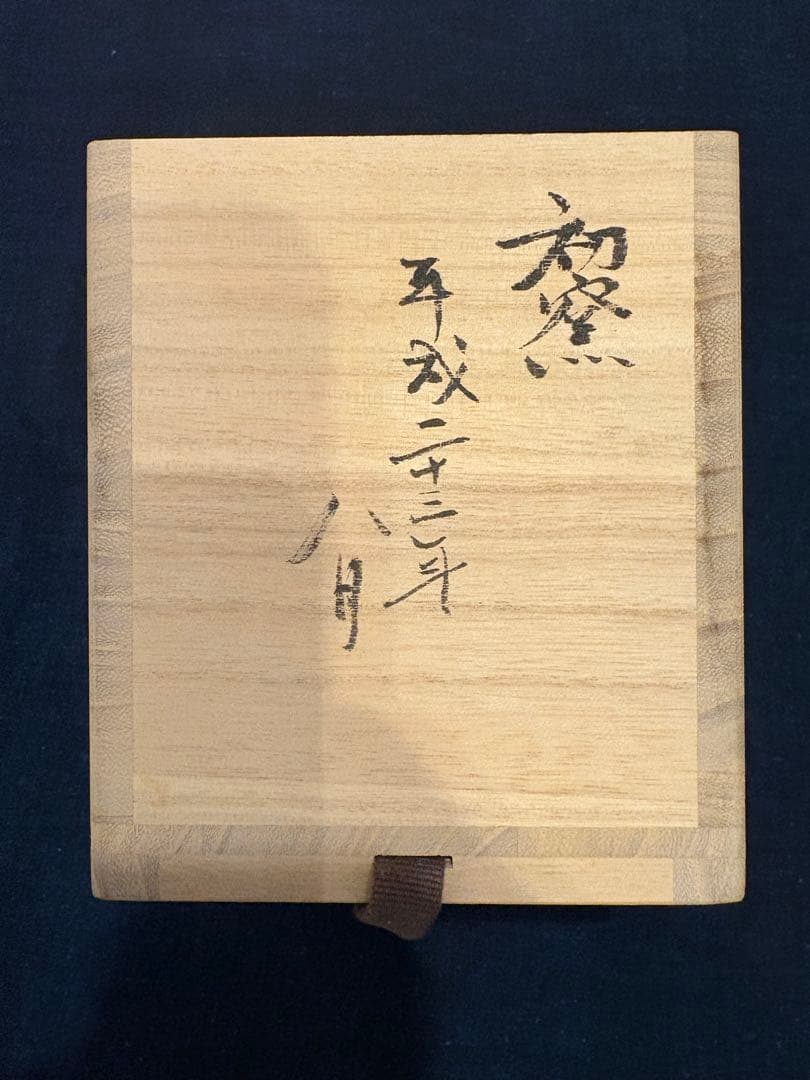 初窯
平成二十三年
八月